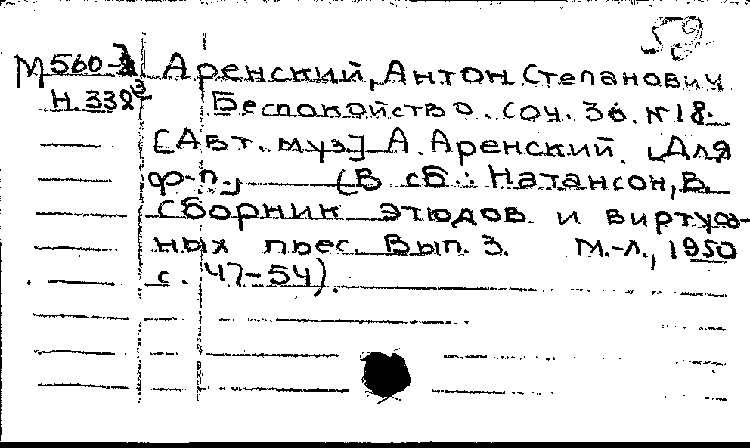 59
М 560-3 Аренский, Антон Степанович
Н. 338³ Беспокойство. Соч. 36. №18.
[Авт. муз] А. Аренский. [Для
ф-п.] (В сб.: Натансон, В.
Сборник этюдов и виртуоз-
ных пьес. Вып. 3. М.-Л., 1950
с. 47-54).